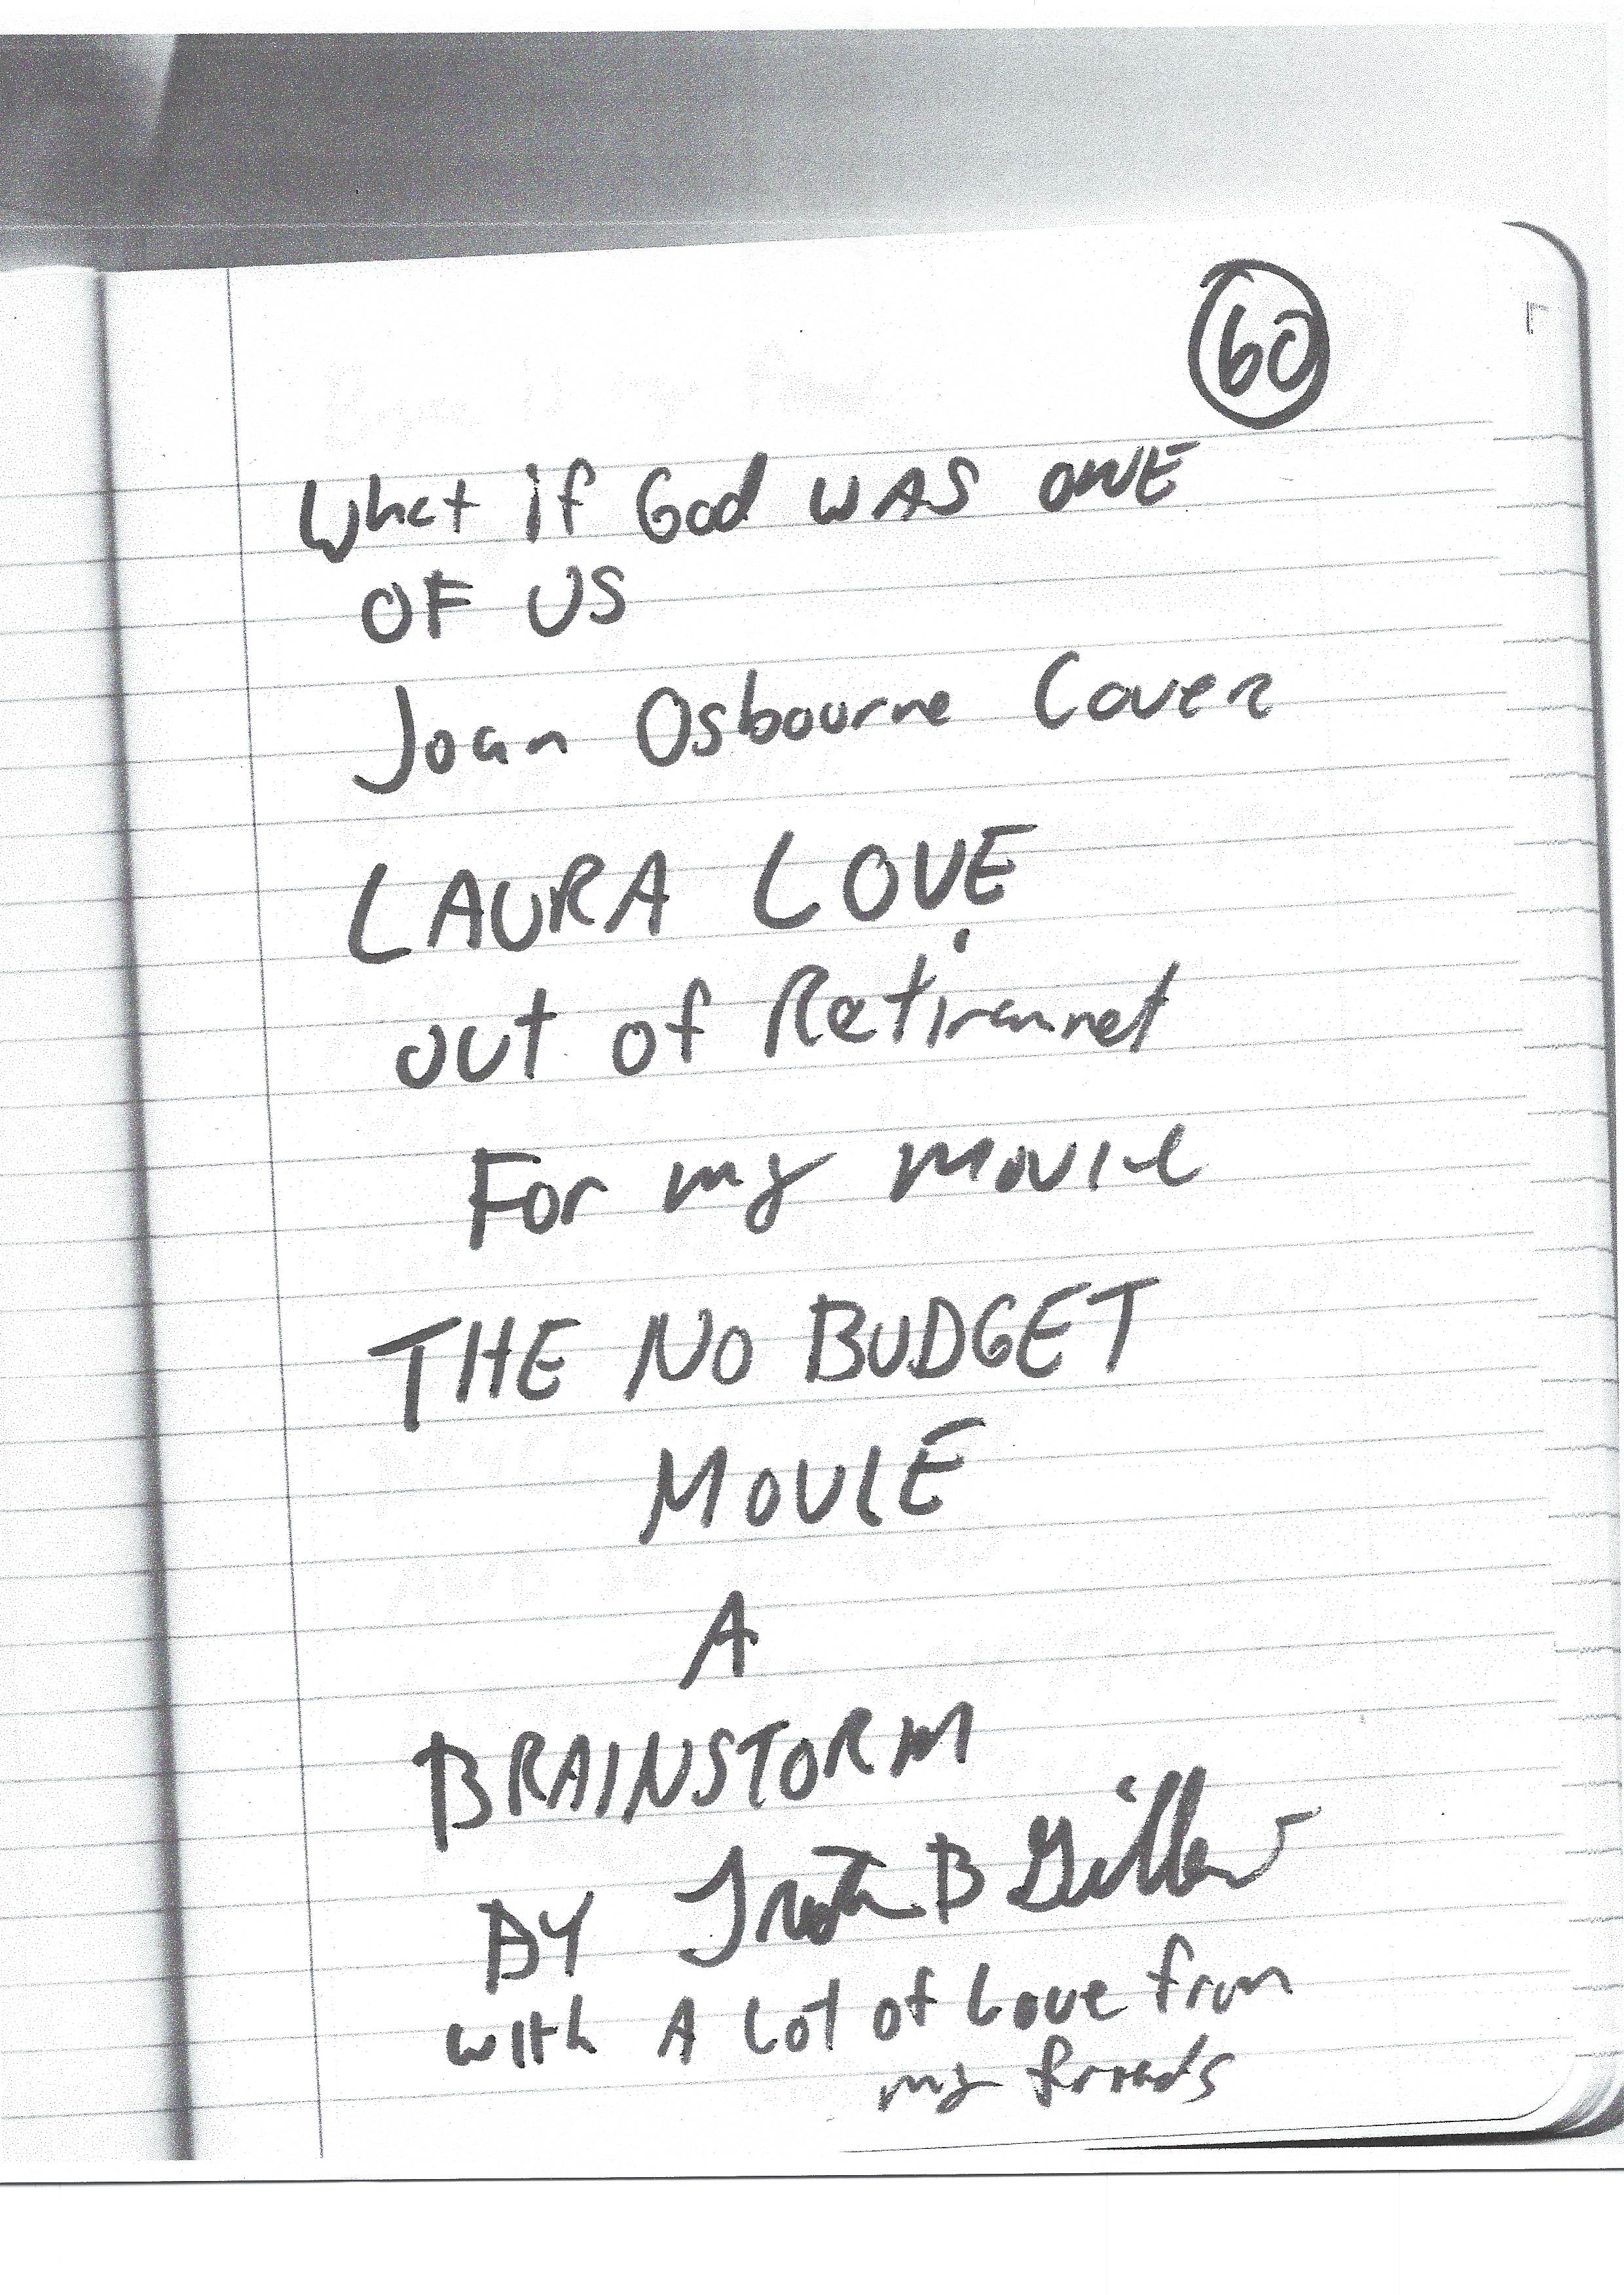 60
What if God WAS ONE
OF US
Joan Osbourne Cover
LAURA LOVE
out of Retirement
For my movie
THE NO BUDGET
MOVIE
A
BRAINSTORM
BY B
with A Lot of Love from
my friends